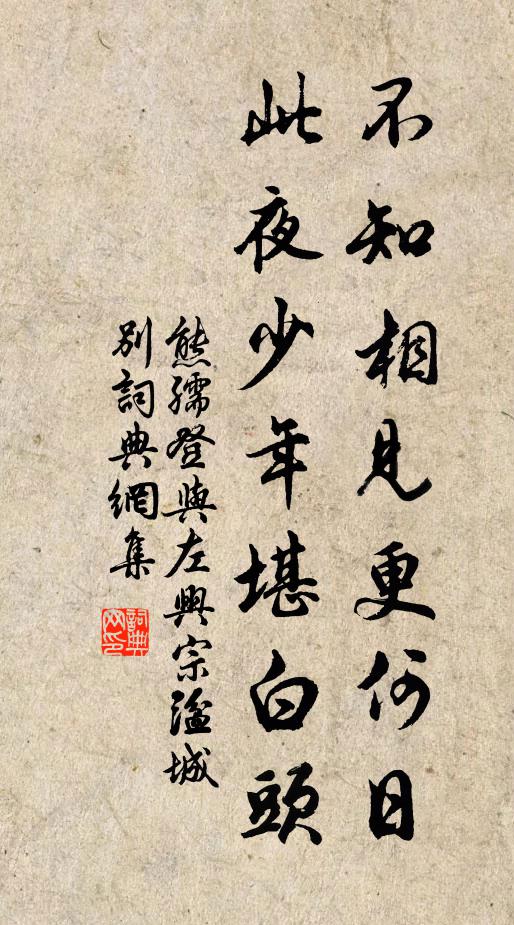 不知相見更何日
此夜少年堪白頭
熊孺登與左興宗湓城
別詞典網集
詞典
网印